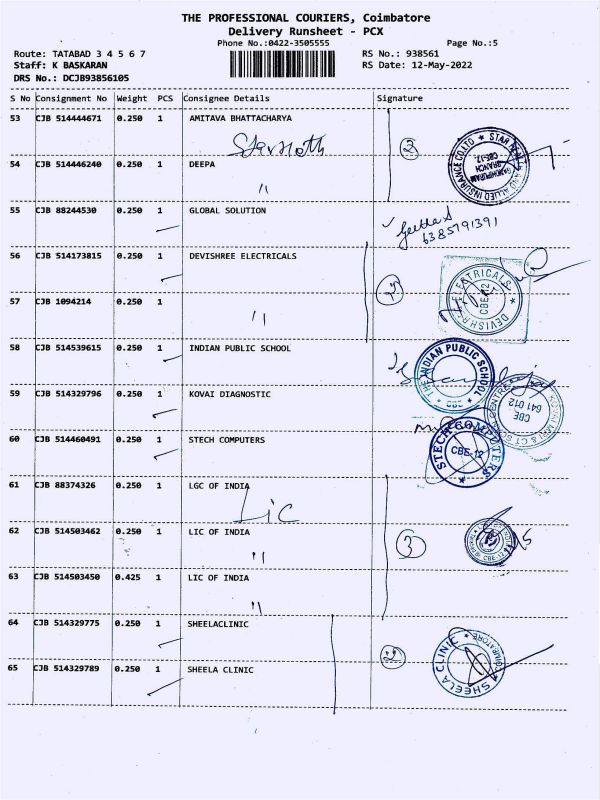 THE PROFESSIONAL COURIERS, Coimbatore
Delivery Runsheet - PCX
Phone No.:0422-3505555 Page No.:5
Route: TATABAD 3 4 5 6 7 RS No.: 938561
Staff: K BASKARAN RS Date: 12-May-2022
DRS No.: DCJB93856105
S No Consignment No Weight PCS Consignee Details Signature
53 CJB 514444671 0.250 1 AMITAVA BHATTACHARYA
2
54 CJB 514446240 0.250 1 DEEPA
"
55 CJB 88244530 0.250 1 GLOBAL SOLUTION
Geetha S
6385791391
56 CJB 514173815 0.250 1 DEVISHREE ELECTRICALS
2
57 CJB 1094214 0.250 1
"
58 CJB 514539615 0.250 1 INDIAN PUBLIC SCHOOL
THE INDIAN PUBLIC SCHOOL
CBE
59 CJB 514329796 0.250 1 KOVAI DIAGNOSTIC
CBE
641 012
60 CJB 514460491 0.250 1 STECH COMPUTERS
STECH COMPUTERS
CBE-12
61 CJB 88374326 0.250 1 LGC OF INDIA
Lic
62 CJB 514503462 0.250 1 LIC OF INDIA
"
3
63 CJB 514503450 0.425 1 LIC OF INDIA
"
64 CJB 514329775 0.250 1 SHEELACLINIC
2
SHEELA CLINIC
65 CJB 514329789 0.250 1 SHEELA CLINIC